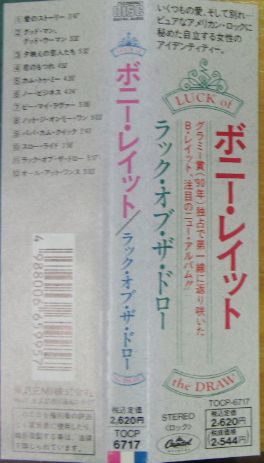 いくつもの愛、そして別れ…
ピュアなアメリカン・ロックに
秘めた自立する女性の
アイデンティティー。
LUCK of
ボニー・レイット
グラミー賞('90年)独占で第一線に返り咲いた
B・レイット、注目のニュー・アルバム!!
ラック・オブ・ザ・ドロー
the DRAW
TOCP-6717
STEREO
(ロック)
Capitol
税込定価
2,620円
税抜価格
2,544円
COMPACT
disc
DIGITAL AUDIO
DRAW
ボニー・レイット/ラック・オブ・ザ・ドロー
the DRAW
税込定価
2,620円
TOCP
6717
① 愛のストーリー 3:47
② グッド・マン、
グッド・ウーマン 3:32
③ 夕映えの恋人たち
⑤ ホーム・トゥ・ミー
⑥ ノー・ビジネス 4:24
⑦ ビー・マイ・ラヴァー
⑧ ノット・ジ・オンリー・ワン
⑨ パパ・カム・クイック
⑩ スロー・ライド
⑪ ラック・オブ・ザ・ドロー
⑫ オール・アット・ワンス
4988006659957